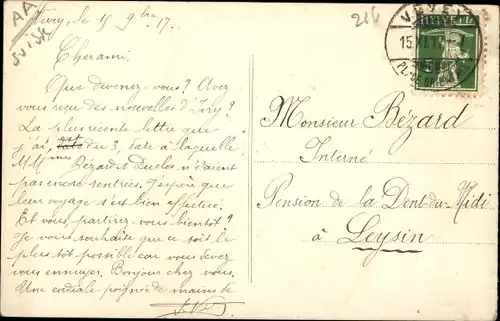 AA
SUISSE
Vevey, le 15 9bre 17.
Cher ami.
Que devenez-vous? Avez
vous reçu des nouvelles d'Ivry?
La plus récente lettre que
j'ai, date du 3, date à laquelle
MMmes Bézard et Duclos n'étaient
pas encore rentrées. J'espère que
leur voyage s'est bien effectué.
Et vous, partirez-vous bientôt?
Je vous souhaite que ce soit le
plus tôt possible car vous devez
vous ennuyer. Bonjour chez vous.
Une cordiale poignée de mains de
214
VEVEY
15.XI.17
HELVETIA
Monsieur Bézard
Interné
Pension de la Dent-du-Midi
à Leysin